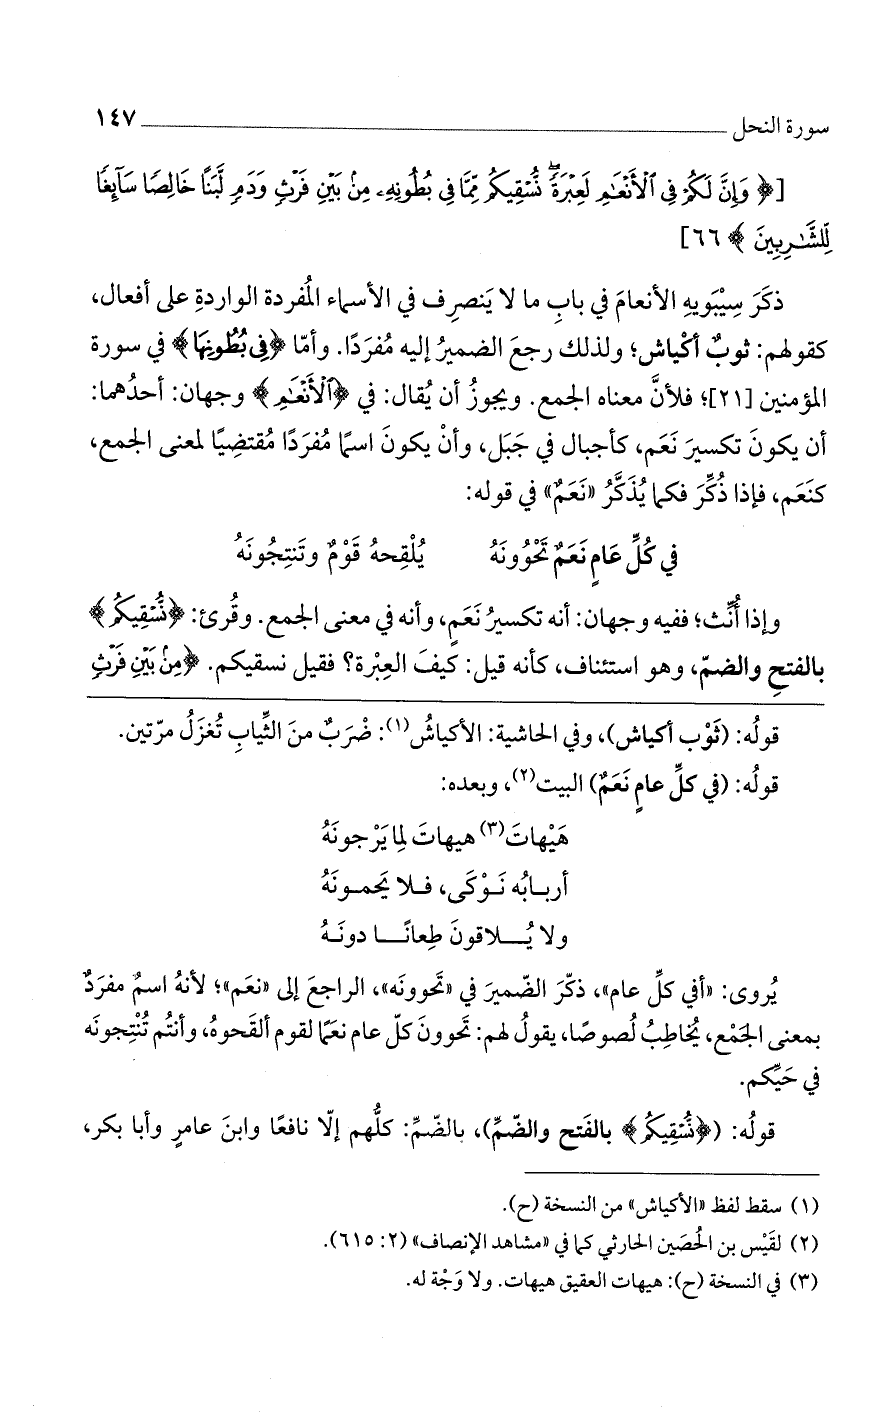 سورة النحل ١٤٧
[﴿ وَإِنَّ لَكُمْ فِي الْأَنْعَامِ لَعِبْرَةً ۖ نُّسْقِيكُم مِّمَّا فِي بُطُونِهِ مِن بَيْنِ فَرْثٍ وَدَمٍ لَّبَنًا خَالِصًا سَآئِغًا
لِّلشَّارِبِينَ ﴾ ٦٦]
ذكَرَ سِيْبَويهِ الأنعامَ في بابِ ما لا يَنصرِف في الأسماء المُفردة الواردةِ على أفعال،
كقولهم: ثوبٌ أكْياش؛ ولذلك رجعَ الضميرُ إليه مُفرَدًا. وأمّا ﴿فِي بُطُونِهَا﴾ في سورة
المؤمنين [٢١]؛ فلأنَّ معناه الجمع. ويجوزُ أن يُقال: في ﴿الْأَنْعَامِ﴾ وجهان: أحدُهما:
أن يكونَ تكسيرَ نَعَم، كأجبال في جَبَل، وأنْ يكونَ اسمًا مُفرَدًا مُقتضِيًا لمعنى الجمع،
كنَعَم، فإذا ذُكِّرَ فكما يُذَكَّرُ «نَعَمٌ» في قوله:
في كُلِّ عَامٍ نَعَمٌ تَحْوُونَهُ يُلْقِحهُ قَوْمٌ وتَنتِجُونَهُ
وإذا أُنِّث؛ ففيه وجهان: أنه تكسيرُ نَعَمٍ، وأنه في معنى الجمع. وقُرئ: ﴿نُّسْقِيكُم﴾
بالفتحِ والضمّ، وهو استئناف، كأنه قيل: كيفَ العِبْرة؟ فقيل نسقيكم. ﴿مِن بَيْنِ فَرْثٍ
قولُه: (ثَوْب أكياش)، وفي الحاشية: الأكياشُ(١): ضْرَبٌ منَ الثِّيابِ تُغزَلُ مرّتين.
قولُه: (في كلِّ عامٍ نَعَمٌ) البيت(٢)، وبعده:
هَيْهاتَ(٣) هيهاتَ لِما يَرْجونَهُ
أربـابُه نَـوْكَى، فـلا يَحمـونَهُ
ولا يُـــلاقونَ طِعانًـــا دونَـهُ
يُروى: «أفي كلِّ عام»، ذكّرَ الضّميرَ في «تَحوونَه»، الراجعَ إلى «نعَم»؛ لأنهُ اسمٌ مفرَدٌ
بمعنى الجَمْع، يُخاطِبُ لُصوصًا، يقولُ لهم: تَحوونَ كلّ عام نعَمًا لقوم ألقَحوهُ، وأنتُم تُنْتِجونَه
في حَيِّكم.
قولُه: (﴿نُّسْقِيكُم﴾ بالفَتح والضّمِّ)، بالضّمِّ: كلُّهم إلّا نافعًا وابنَ عامرٍ وأبا بكر،
(١) سقط لفظ «الأكياش» من النسخة (ح).
(٢) لقَيْس بن الحُصَين الحارثي كما في «مشاهد الإنصاف» (٢: ٦١٥).
(٣) في النسخة (ح): هيهات العقيق هيهات. ولا وَجْهَ له.